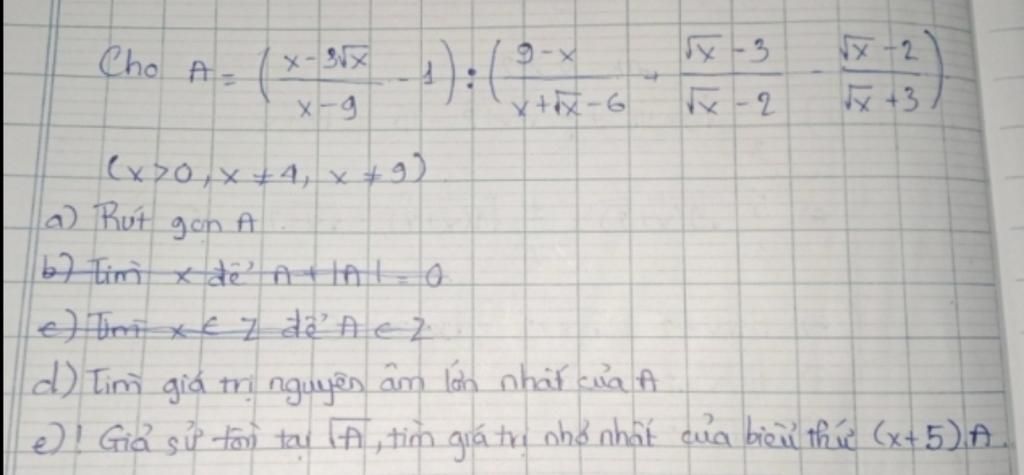 Cho A = (x-3√x / x-9 - 1) : (9-x / x+√x-6 - √x-3 / √x-2 - √x-2 / √x+3)
(x>0, x≠4, x≠9)
a) Rút gọn A
b) Tìm x để A+|A| = 0
c) Tìm x ∈ Z để A ∈ Z
d) Tìm giá trị nguyên âm lớn nhất của A
e)! Giả sử tồn tại √A, tìm giá trị nhỏ nhất của biểu thức (x+5).A